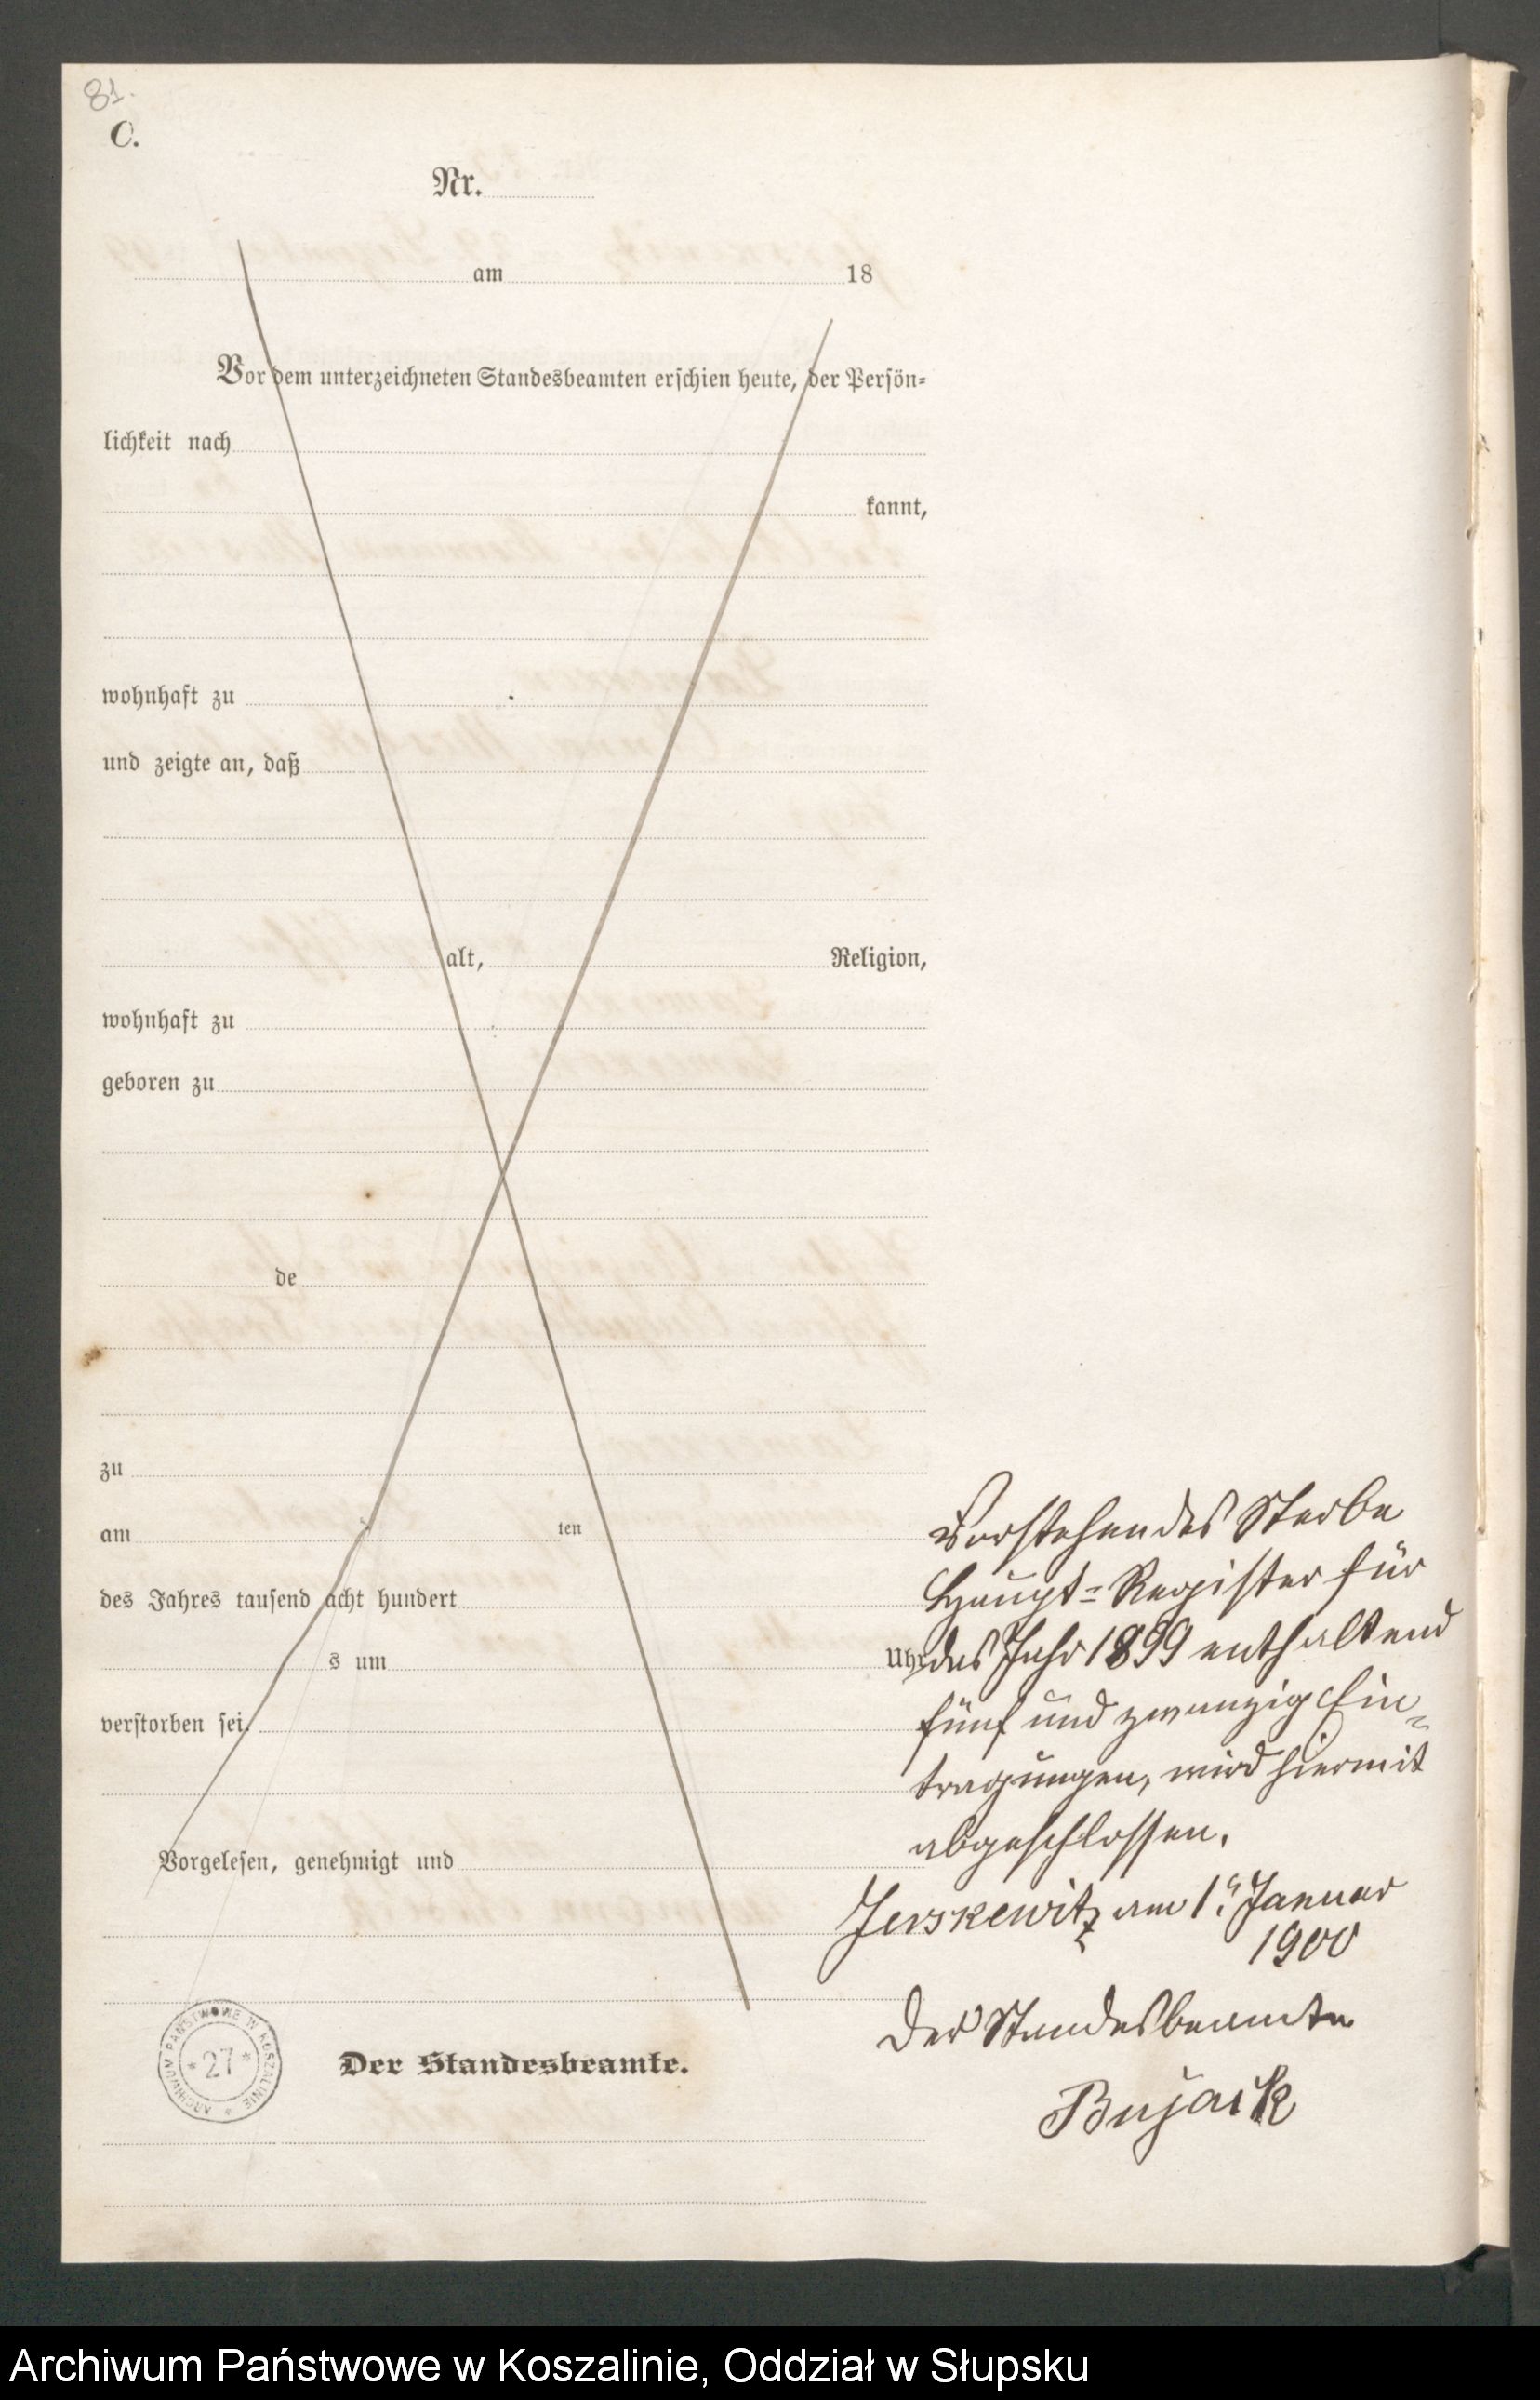 81.
C.
Nr.
am 18
Vor dem unterzeichneten Standesbeamten erschien heute, der Persön-
lichkeit nach
kannt,
wohnhaft zu
und zeigte an, daß
alt, Religion,
wohnhaft zu
geboren zu
de
zu
am ten
des Jahres tausend acht hundert
s um Uhr
verstorben sei.
Vorgelesen, genehmigt und
Der Standesbeamte.
Vorstehendes Sterbe
Haupt-Register für
das Jahr 1899 enthaltend
fünf und zwanzig Ein-
tragungen, wird hiermit
abgeschlossen.
Jerskewitz am 1. Januar
1900
Der Standesbeamte
Bujack
ARCHIWUM PAŃSTWOWE W KOSZALINIE
* 27 *
Archiwum Państwowe w Koszalinie, Oddział w Słupsku